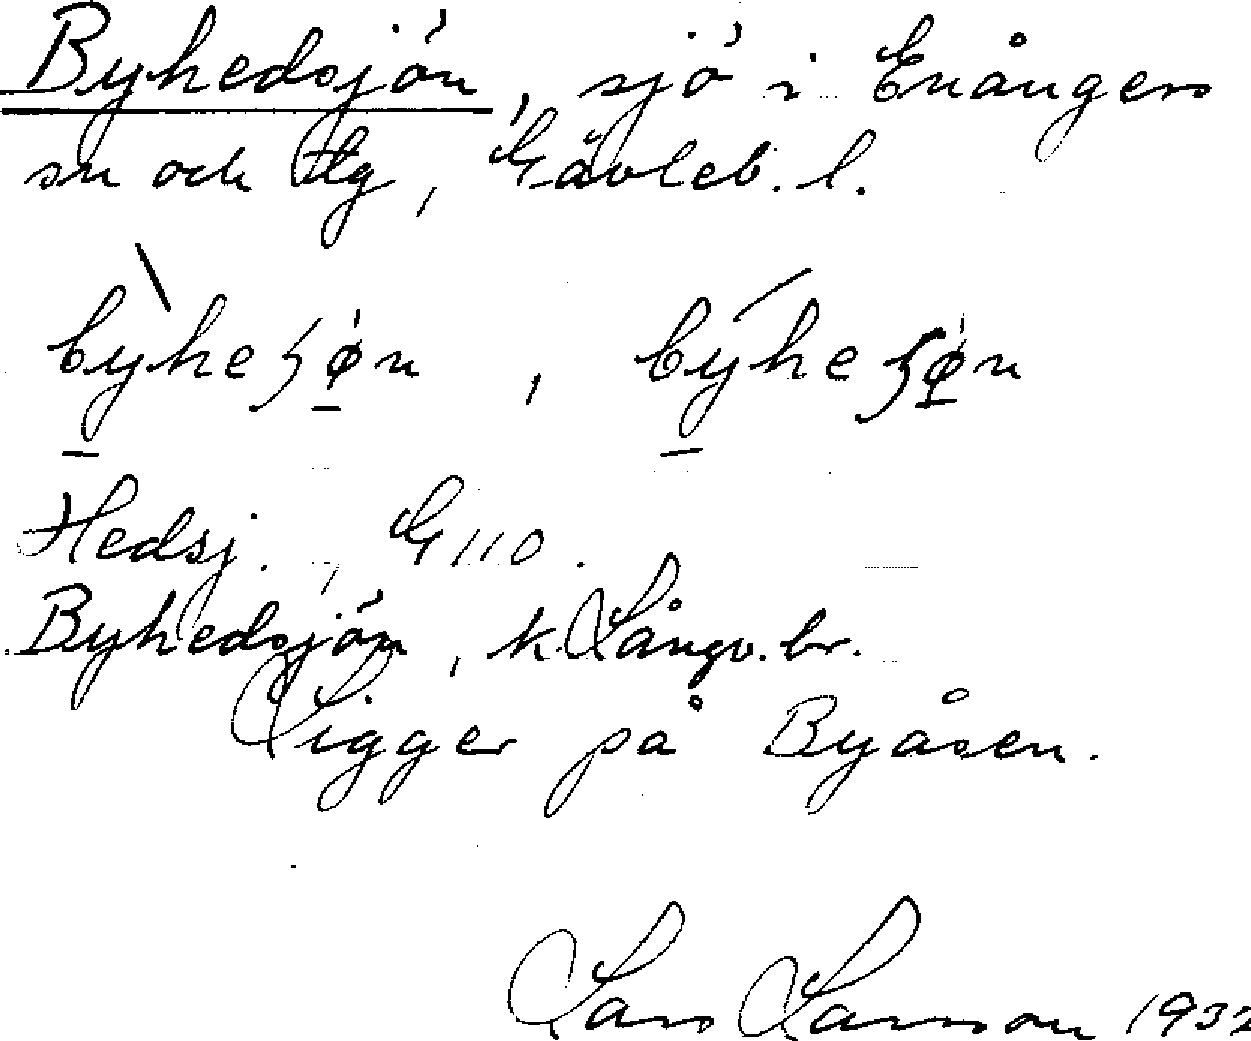 Byhedsjön, sjö i Enångers
sn och tlg, Gävleb. l.
bỳ̱heʃø̱n , bý̱heʃø̱n
Hedsj., G 110.
Byhedsjön, k Långv. br.
Ligger på Byåsen.
Lars Larsson 1932